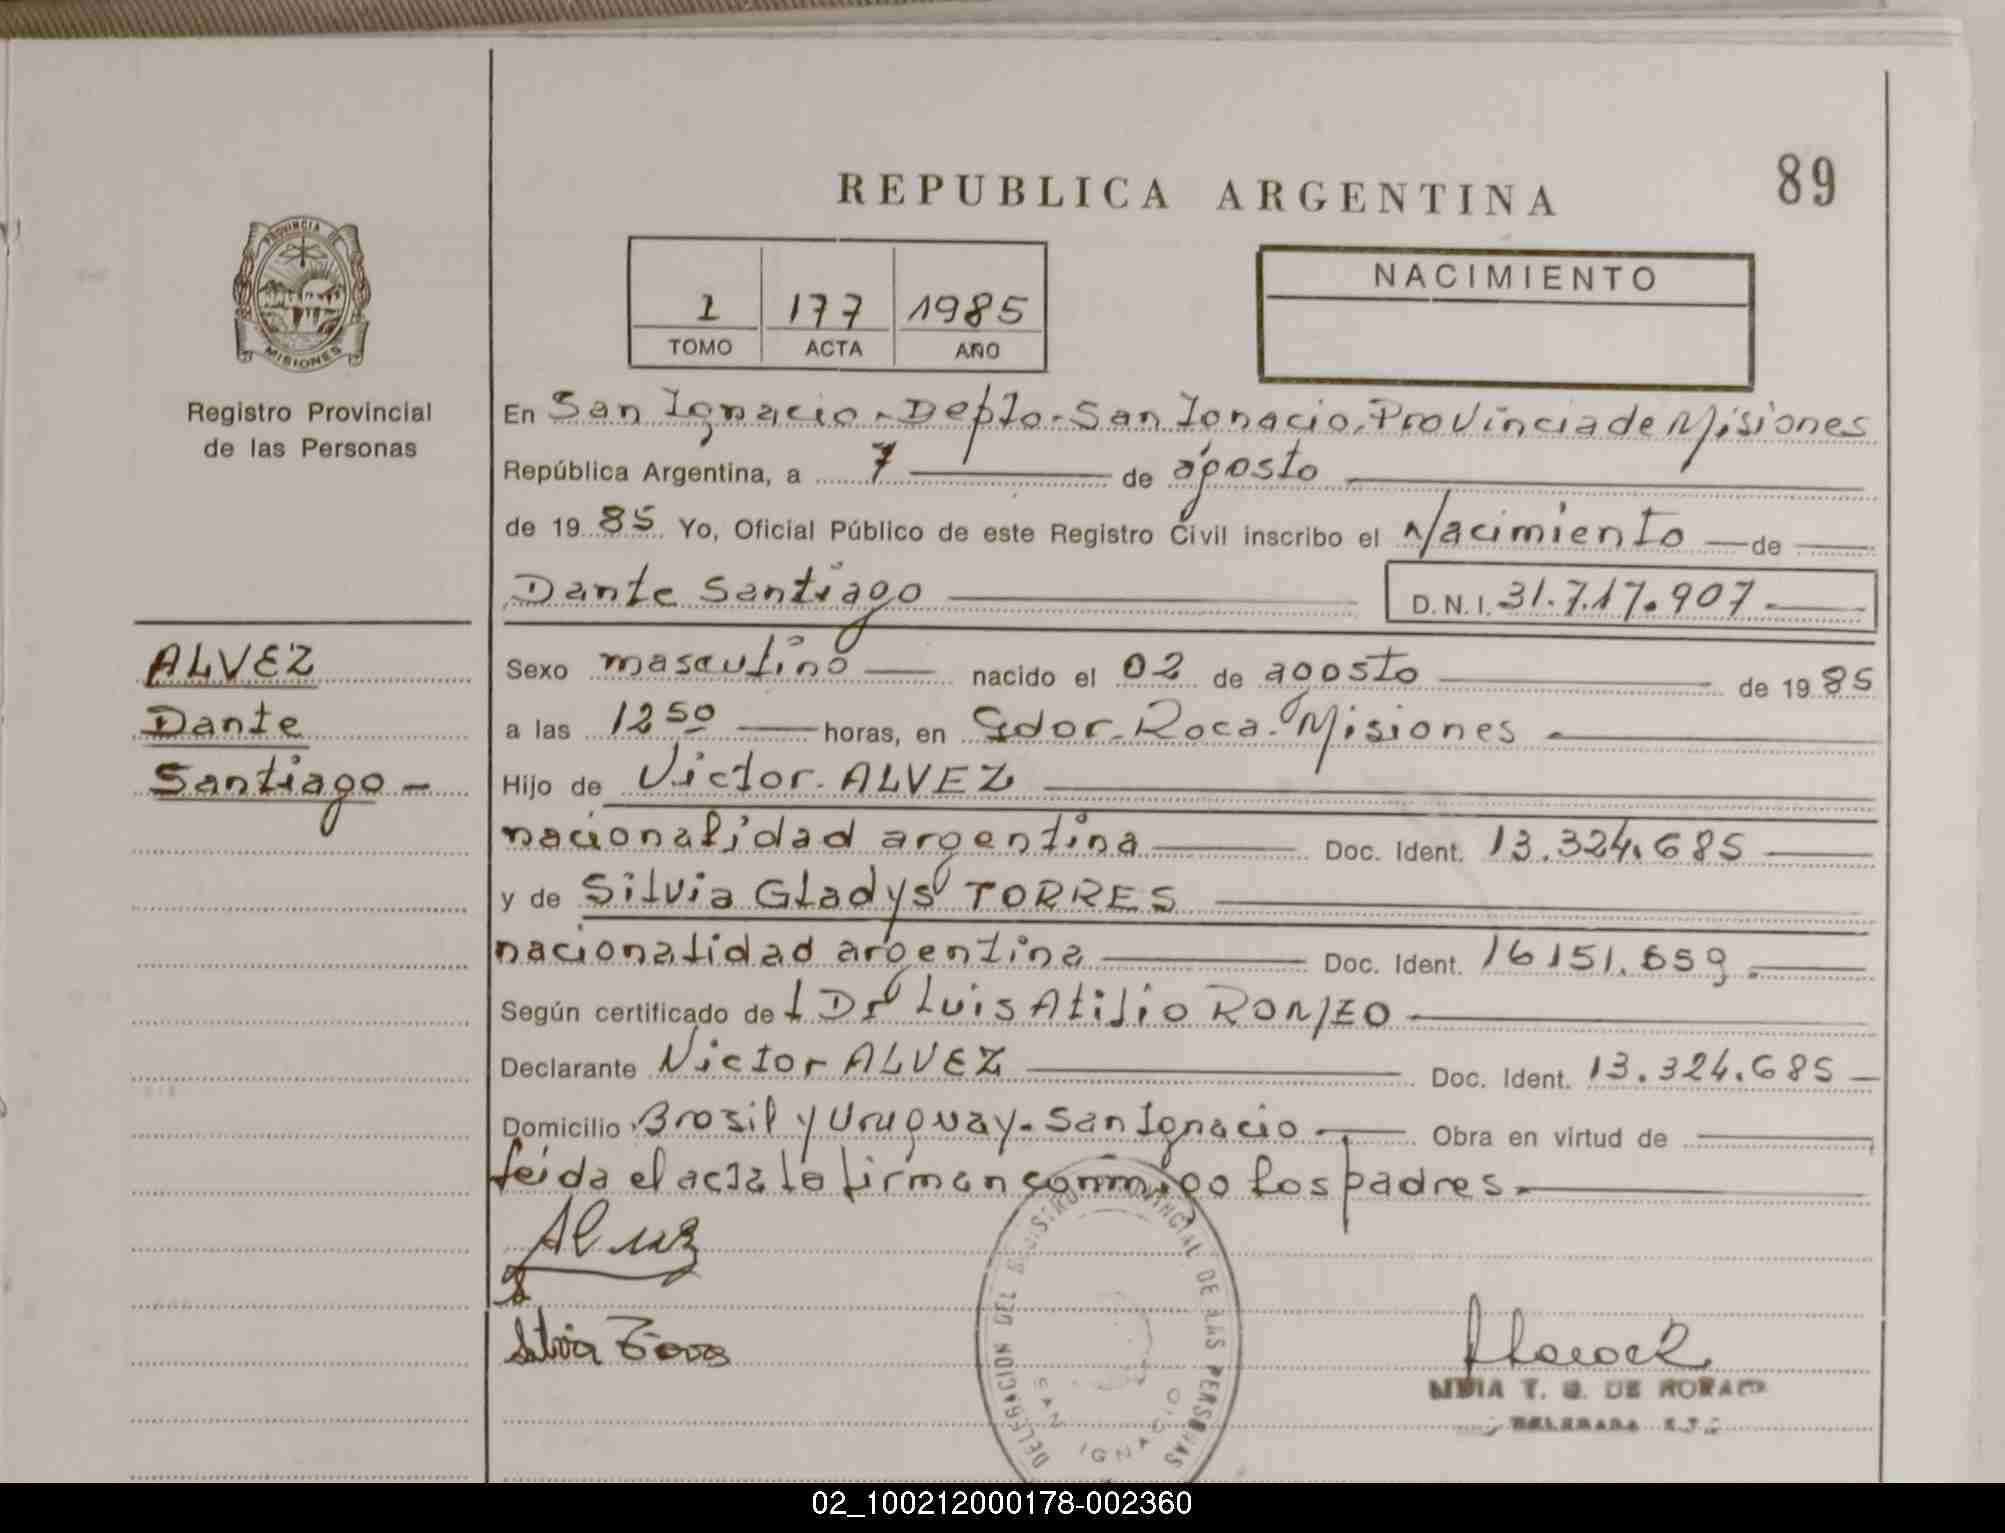 REPUBLICA ARGENTINA
89
PROVINCIA DE
MISIONES
Registro Provincial
de las Personas
1 177 1985
TOMO ACTA AÑO
NACIMIENTO
En San Ignacio - Depto - San Ignacio, Provincia de Misiones
República Argentina, a 7 de agosto
de 19 85 Yo, Oficial Público de este Registro Civil inscribo el Nacimiento de
Dante Santiago D.N.I. 31.717.907
ALVEZ
Dante
Santiago -
Sexo masculino nacido el 02 de agosto de 19 85
a las 12 50 horas, en Gdor. Roca. Misiones
Hijo de Victor ALVEZ
nacionalidad argentina Doc. Ident. 13.324.685
y de Silvia Gladys TORRES
nacionalidad argentina Doc. Ident. 16151.659
Según certificado de l Dr Luis Atilio ROMEO
Declarante Victor ALVEZ Doc. Ident. 13.324.685
Domicilio Brasil y Uruguay - San Ignacio Obra en virtud de
leida el acta la firman conmigo los padres.
Silvia
DELEGACION DEL REGISTRO PROVINCIAL DE LAS PERSONAS
SAN IGNACIO
T. G. DE
DELEGADA
02_100212000178-002360